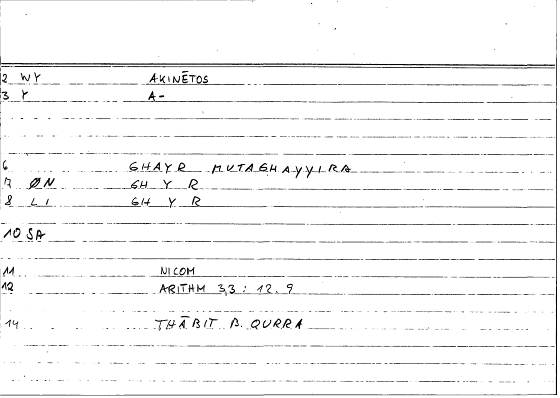 2 WY AKINĒTOS
3 Y A-
6 GHAYR MUTAGHAYYIRA
7 ØN GH Y R
8 LI GH Y R
10 SA
11 NICOM
12 ARITHM 3,3 : 12.9
14 THĀBIT B. QURRA